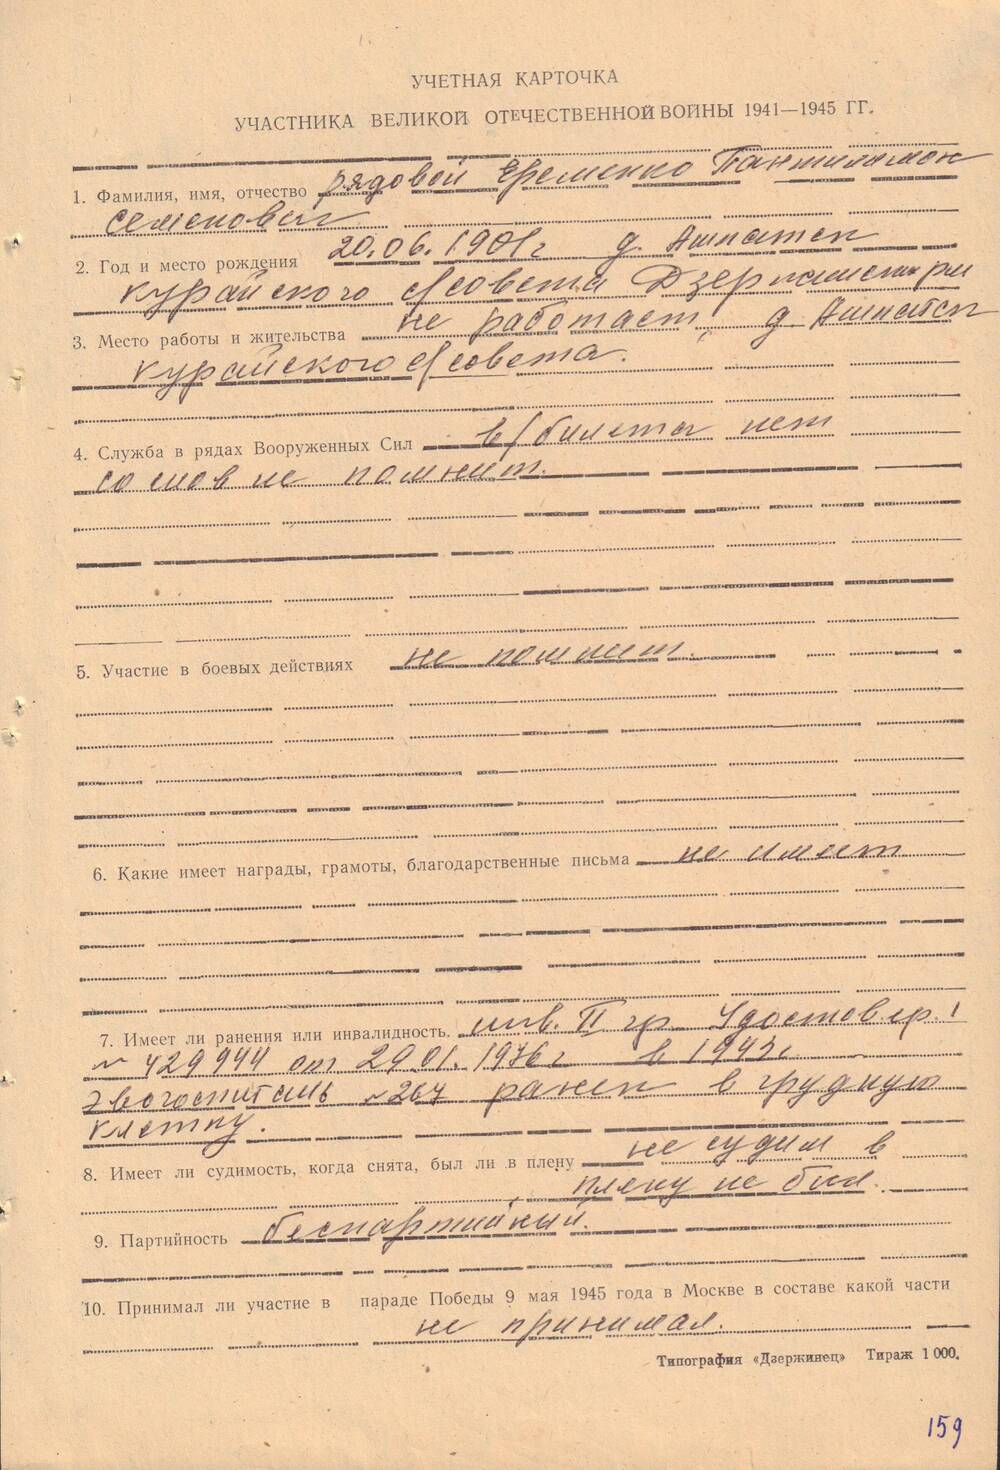 УЧЕТНАЯ КАРТОЧКА
УЧАСТНИКА ВЕЛИКОЙ ОТЕЧЕСТВЕННОЙ ВОЙНЫ 1941—1945 ГГ.
1. Фамилия, имя, отчество рядовой Еременко Пантилимон
Семенович
2. Год и место рождения 20.06.1901г д. Ашпатск
Курайского с/совета Дзержинск
3. Место работы и жительства не работает д Ашпатск
Курайского с/совета.
4. Служба в рядах Вооруженных Сил в/билета нет
со слов не помнит.
5. Участие в боевых действиях не помнит.
6. Какие имеет награды, грамоты, благодарственные письма не имеет
7. Имеет ли ранения или инвалидность. инв. II гр Удостовер.
№ 429944 от 29.01.1976г в 1943г
эвогоспиталь №267 ранен в грудную
клетку.
8. Имеет ли судимость, когда снята, был ли в плену не судим в
плену не был.
9. Партийность беспартийный.
10. Принимал ли участие в параде Победы 9 мая 1945 года в Москве в составе какой части
не принимал.
Типография «Дзержинец» Тираж 1 000.
159